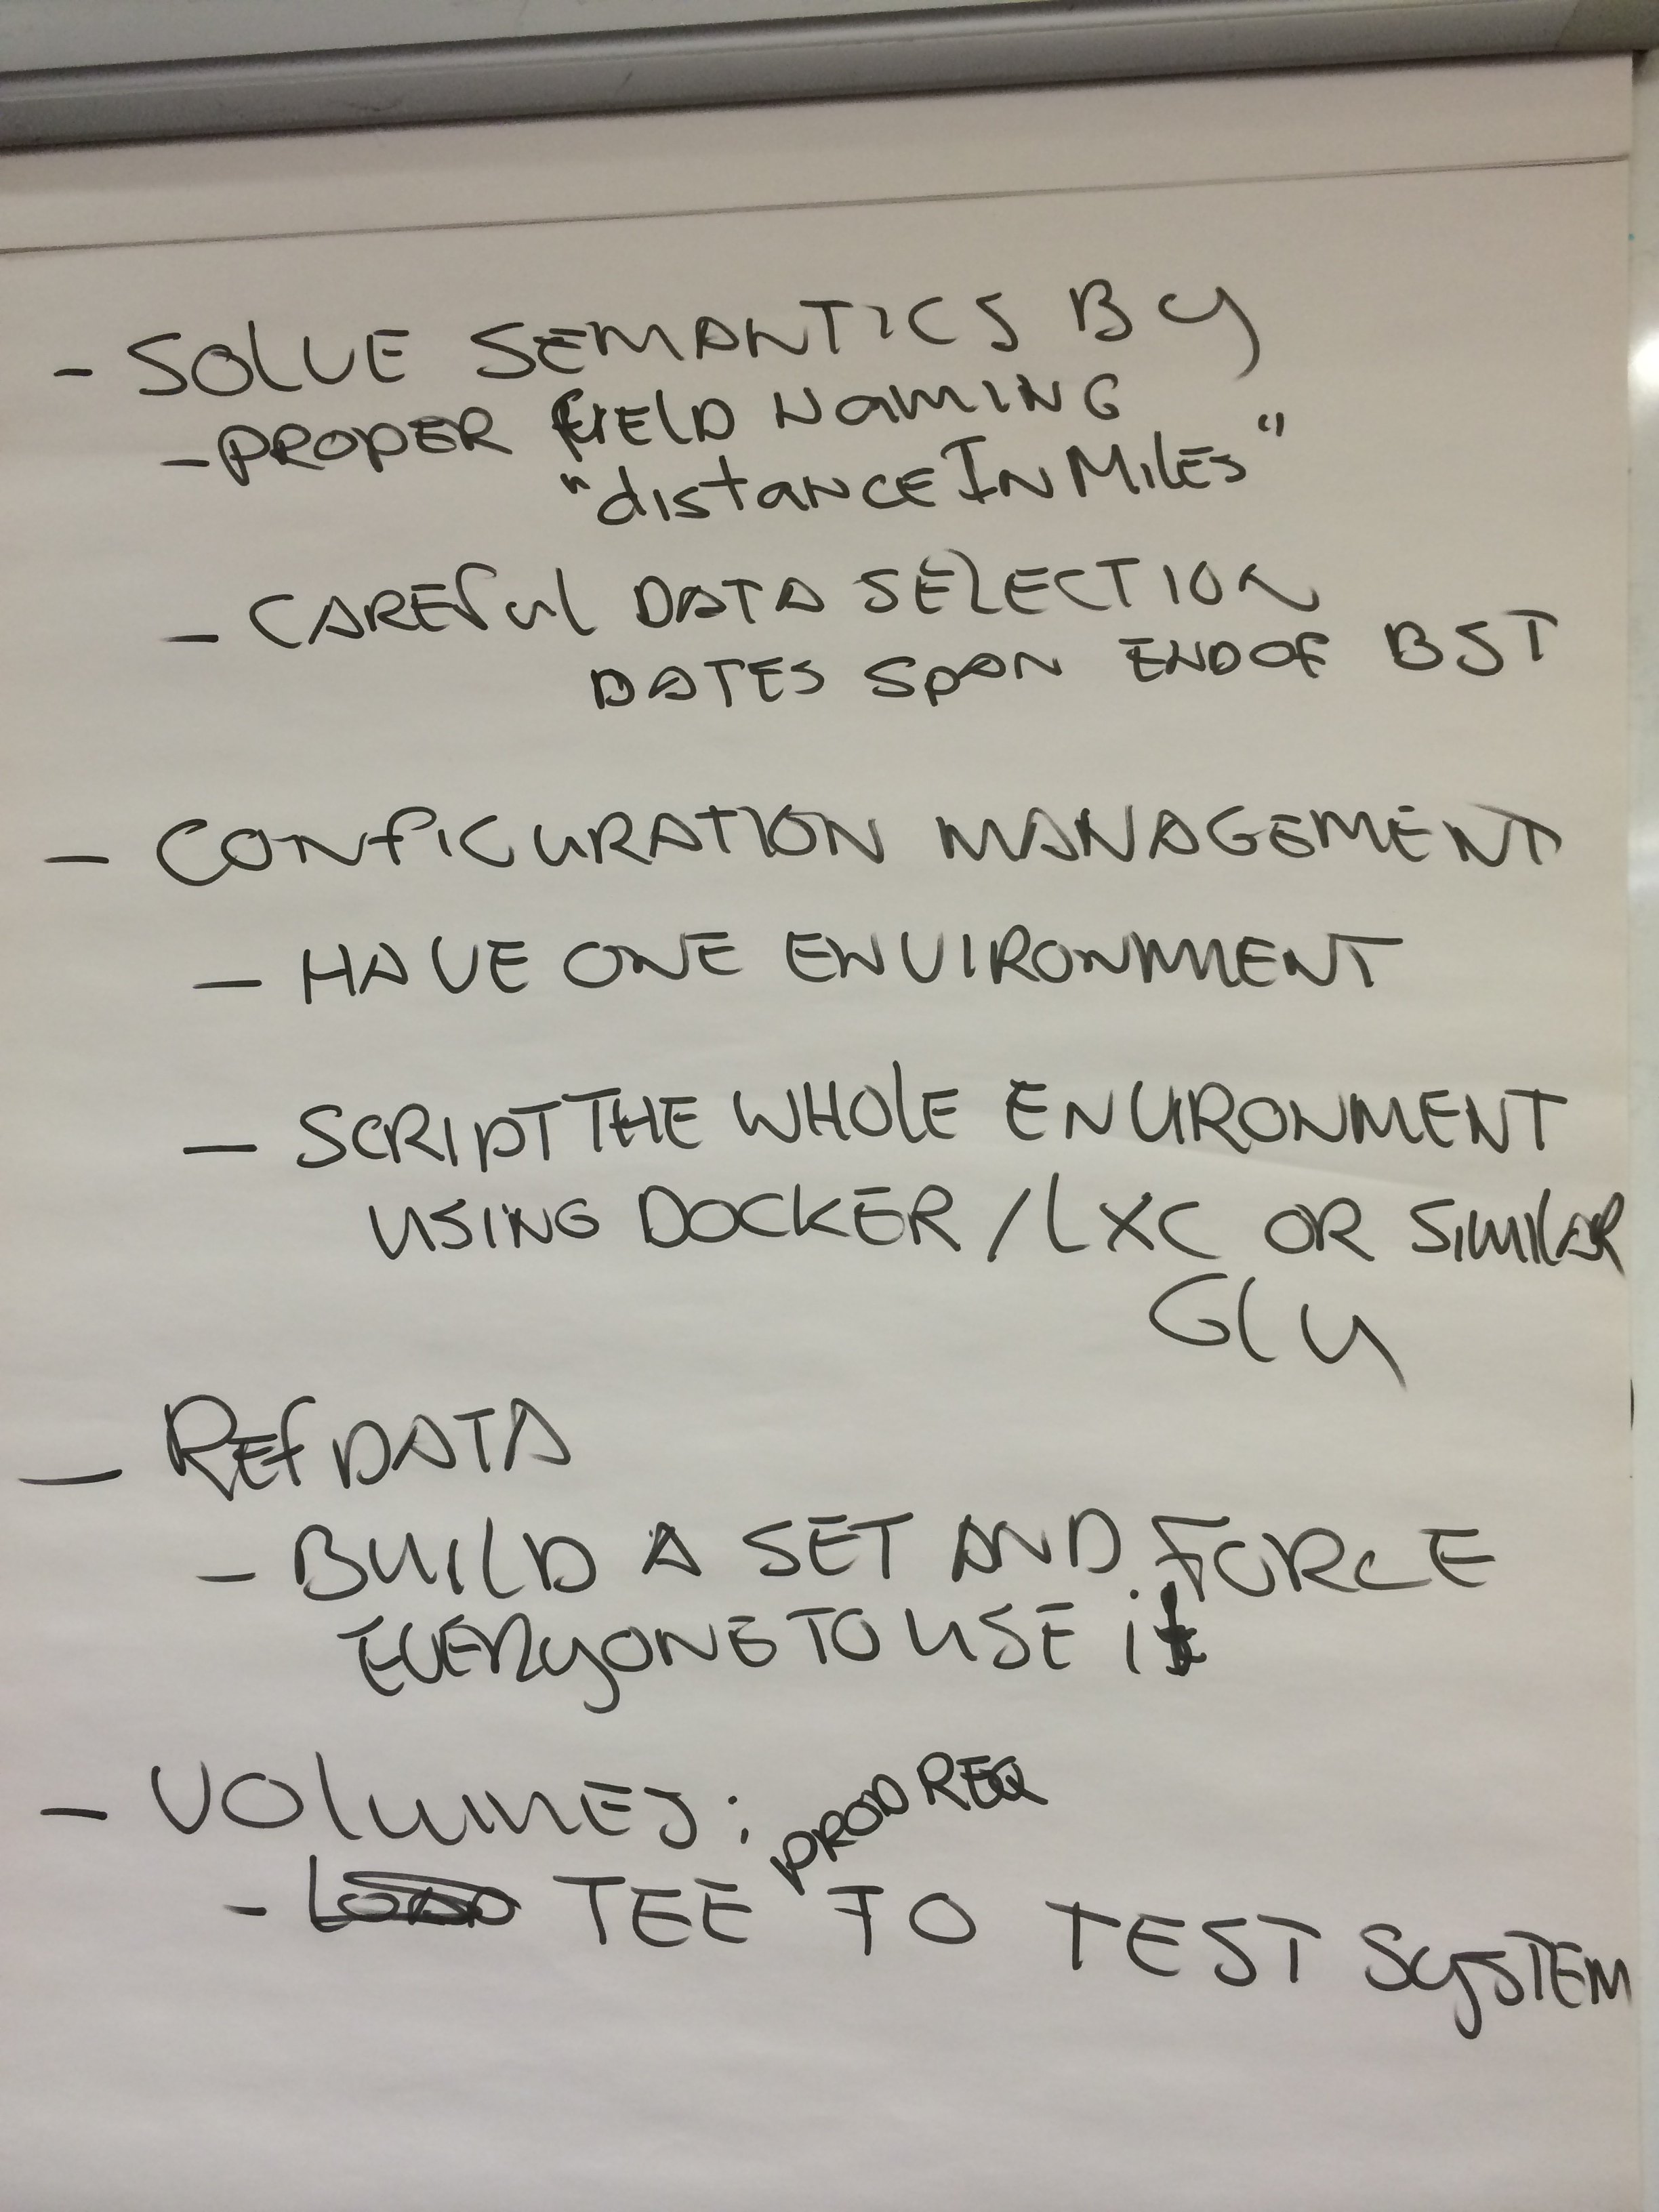 - SOLVE SEMANTICS BY
- PROPER FIELD NAMING
"distANCEINMILES"
- CAREfUl DATA SELECTION
DATES SPAN END OF BST
- CONFIGURATION MANAGEMENT
- HAVE ONE ENVIRONMENT
- SCRIPT THE WHOLE ENVIRONMENT
USING DOCKER / LXC OR SIMILAR
GLU
- REf DATA
- BUILD A SET AND FORCE
EVERYONE TO USE it
- VOLUMES:
PROD REQ
- TEE TO TEST SYSTEM